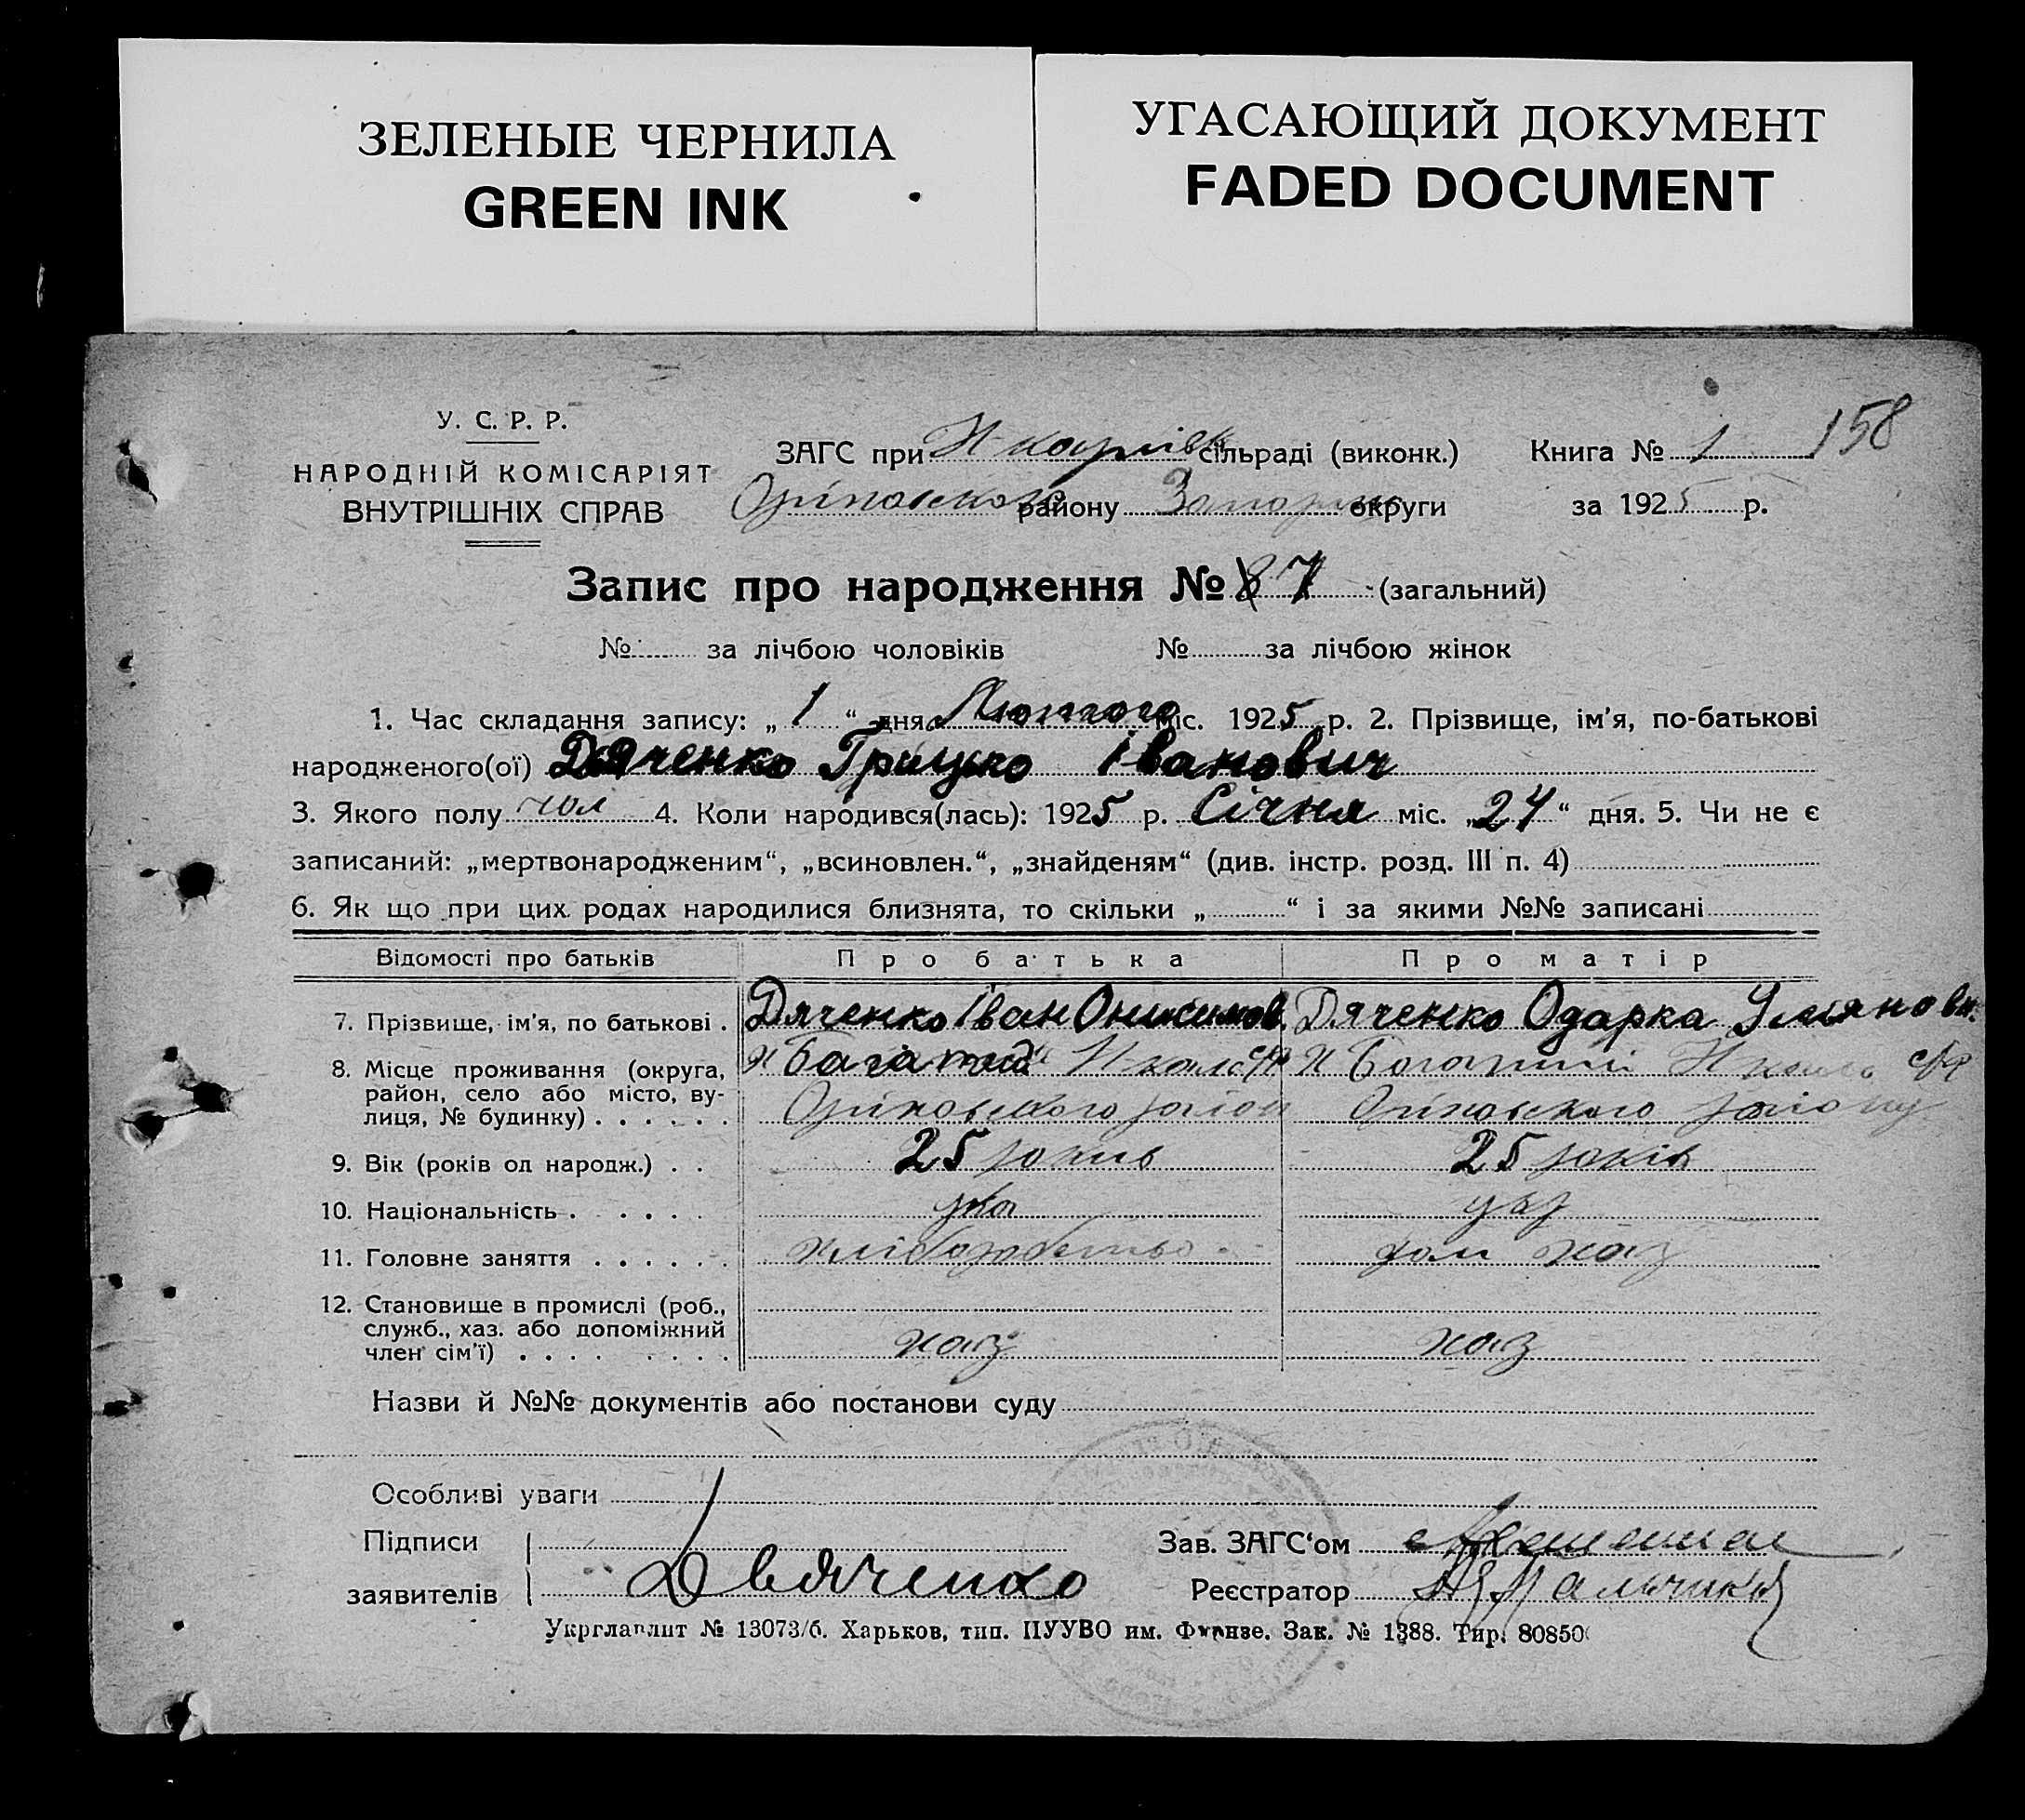 ЗЕЛЕНЫЕ ЧЕРНИЛА
GREEN INK
УГАСАЮЩИЙ ДОКУМЕНТ
FADED DOCUMENT
У. С. Р. Р.
НАРОДНІЙ КОМІСАРІЯТ
ВНУТРІШНІХ СПРАВ
ЗАГС при Н карлівс сільраді (виконк.) Книга № 1 158
Оріховсього району Запоріж округи за 1925 р.
Запис про народження № 7 (загальний)
№ за лічбою чоловіків № за лічбою жінок
1. Час складання запису: „ 1 “ дня Лютого міс. 1925 р. 2. Прізвище, ім'я, по-батькові
народженого(ої) Дяченко Грицько Іванович
3. Якого полу чол 4. Коли народився(лась): 1925 р. Січня міс. „24“ дня. 5. Чи не є
записаний: „мертвонародженим“, „всиновлен.“, „знайденям“ (див. інстр. розд. III п. 4)
6. Як що при цих родах народилися близнята, то скільки „ “ і за якими №№ записані
Відомості про батьків Про батька Про матір
7. Прізвище, ім'я, по батькові . Дяченко Іван Онисимов. Дяченко Одарка Умяновн.
8. Місце проживання (округа,
район, село або місто, ву-
лиця, № будинку) . . . . . . Оріховського район Оріховського району
9. Вік (років од народж.) . . 25 років 25 років
10. Національність . . . . . укр укр
11. Головне заняття . . . . . . хліборобство дом хаз
12. Становище в промислі (роб.,
служб., хаз. або допоміжний
член сім'ї) . . . . . . . . хаз хаз
Назви й №№ документів або постанови суду
Особливі уваги
Підписи Зав. ЗАГС‘ом
заявителів Дьяченко Реєстратор
Укрглавлит № 13073/б. Харьков, тип. ПУУВО им. Фрунзе. Зак. № 1388. Тир. 80850